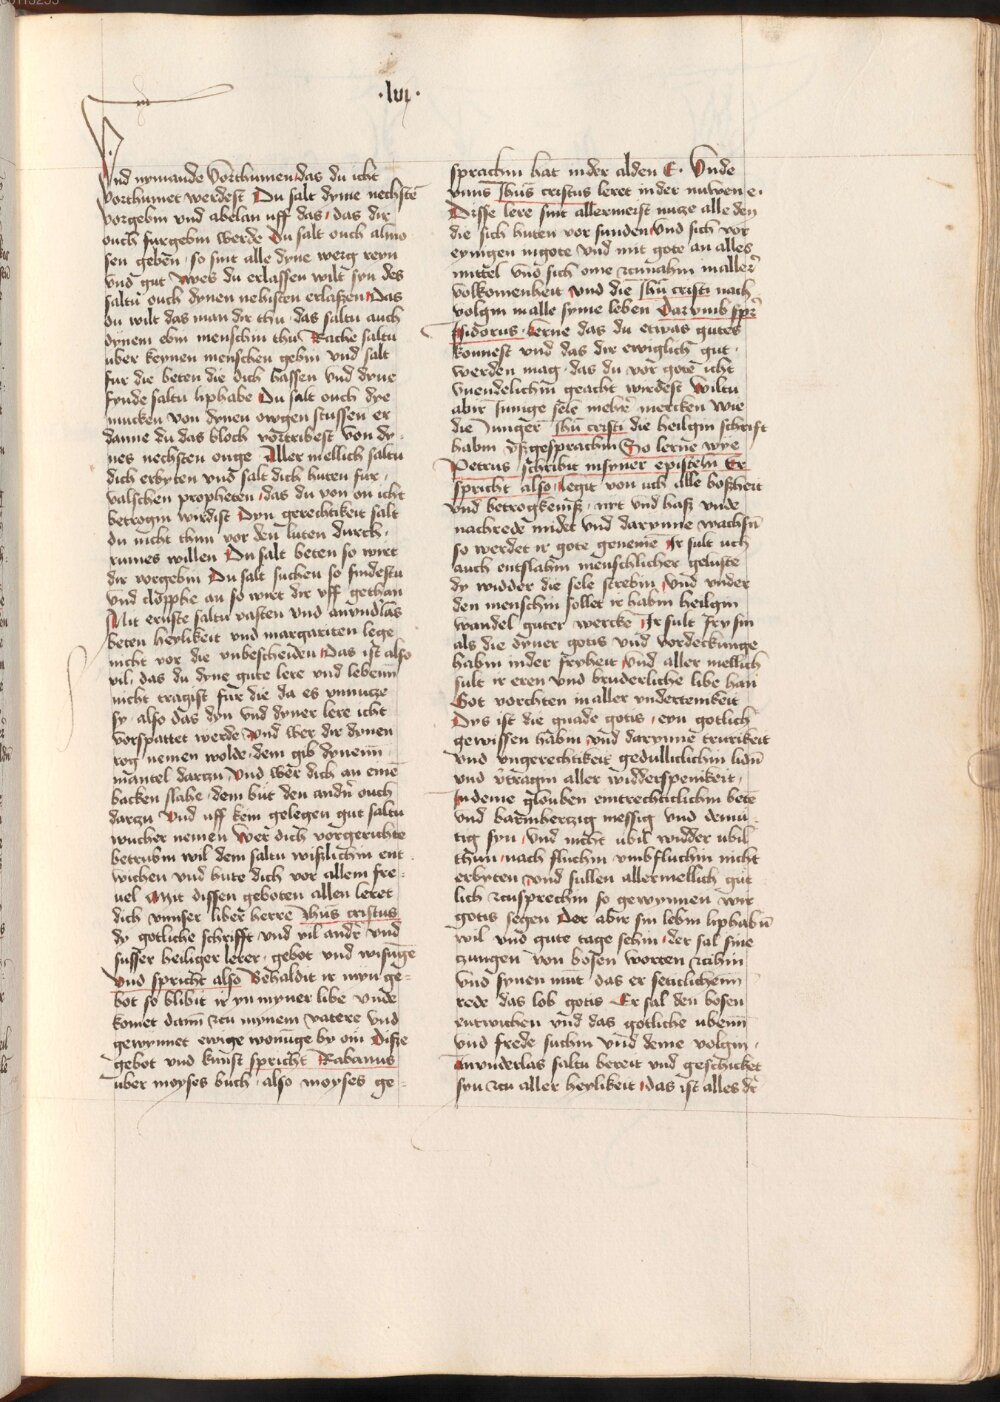 ·lvj·
Vnd nymande vorthumen das du icht
vorthumet werdest Du salt dyme nechstē
vorgebin vnd abelan uff das das dir
ouch furgebin werde Du salt ouch almo
sen gebēn so sint alle dyne werg reyn
vnd gut Wes du erlassen wilt syn des
saltu ouch dynen nehisten erlaszen Das
du wilt das man dir thu das saltu auch
dynem ebin menschin thu Rache saltu
uber keynen menschen gebin vnd salt
fur die beten die dich hassen vnd dyne
frunde saltu liphabe Du salt ouch dye
mucken von dynen owgen stussen er
danne du das bloch vortribest von dy
nes nechsten ouge Aller mellich saltu
dich erbyten vnd salt dich huten fur
valschen propheten das du von on icht
betrogin wirdist Dyn gerechtikeit salt
du nicht thun vor den luten durch
rumes willen Du salt beten so wirt
dir vorgebin Du salt suchen so findestu
vnd cloppbe an so wirt dir uff gethan
Mit ernste saltu vasten vnd anvndlas
beten heylikeit vnd margariten lege
nicht vor die vnbescheiden Das ist also
vil das du dyne gute lere vnd lebenn
nicht tragist fur die da es vnnucze
sy also das dyn vnd dyner lere icht
vorspattet werde Vnd wer dir dynen
rog nemen wolde dem gib dynenn
mantel darczu Vnd wer dich an eine
backen slahe dem but den andn̄ ouch
darczu Vnd uff kein gelegen gut saltu
wucher nemen Wer dich vorgerichte
betrubin wil dem saltu wiszlichin ent
wichen vnd hute dich vor allem fre
uel Mit dissen geboten allen leret
dich vnnser liber herre Jhūs cristus
dy gotliche schrifft vnd vil andr̄ vnd
susser heiliger lerer gebot vnd wisunge
Vnd spricht also Behaldit ir myn ge
bot so blibit ir yn myner libe vnde
komet dann zcu mynem vatere vnd
gewynnet ewige wonuge by om Disse
gebot vnd kunst spricht Rabanus
uber moyses buch also moyses ge
sprachin hat in der alden E. Vnde
vnns Jhūs cristus leret in der nuwen e.
Disse lere sint allermeist nucze alle den
die sich huten vor sunden Vnd sich vor
eynigen ingote vnd mit gote an alles
mittel vnd sich ome zcunahin in aller
volkomenheit Vnd die Jhū cristi nach
volgin in alle syme leben Darvmb spr̄
Isidorus lerne das du etwas gutes
konnest vnd das dir ewiglich gut
werden mag das du vor gote icht
vnendelichin geacht wirdest Wiltu
abir Innige sele mehr mercken wie
die Junger Jhū cristi die heilgin schrift
habin uszgesprachin So lerne wye
Petrus schribit in syner episteln Er
spricht also legit von uch alle boszheit
vnd betrogkenisz nyt vnd hasz vnde
nachrede midet vnd darynne wachsn̄
so werdet ir gote geneme Ir sult uch
auch entslahin menschlicher geluste
dy widder die sele strebin Vnd vnder
den menschin sollet ir habin heilgin
wandel guter wercke Ir sult fry sin
als die dyner gotis vnd vordeckunge
habin in der fryheit Vnd aller mellich
sult ir eren vnd bruderliche libe han
Got vorchten in aller vndertenikeit
Dys ist die gnade gotis eyn gotlich
gewissen habin vnd darynne trurikeit
vnd vngerechtikeit gedulliclichin lidn̄
vnd v̄tragin aller widderspenikeit
In deme glouben eintrechticlichin bete
vnd barmherczig messig vnd demu
tig syn Vnd nicht ubil widder ubil
thun nach fluchin vmbfluchin nicht
erbyten vnd sullen allermellich gut
lich zcusprechin so gewynnen wir
gotis segen Der abir sin lebin liphabn̄
wil vnd gute tage sehin der sal sine
czungen von bosen worten zcihin
vnd synen mut das er seticlichenn
rede das lob gotis Er sal den bosen
entwichen vnd das gotliche ubenn
vnd frede suchin vnd deme volgin
Anvnderlas saltu bereit vnd geschicket
syn zcu aller heylikeit Das ist alles dr̄